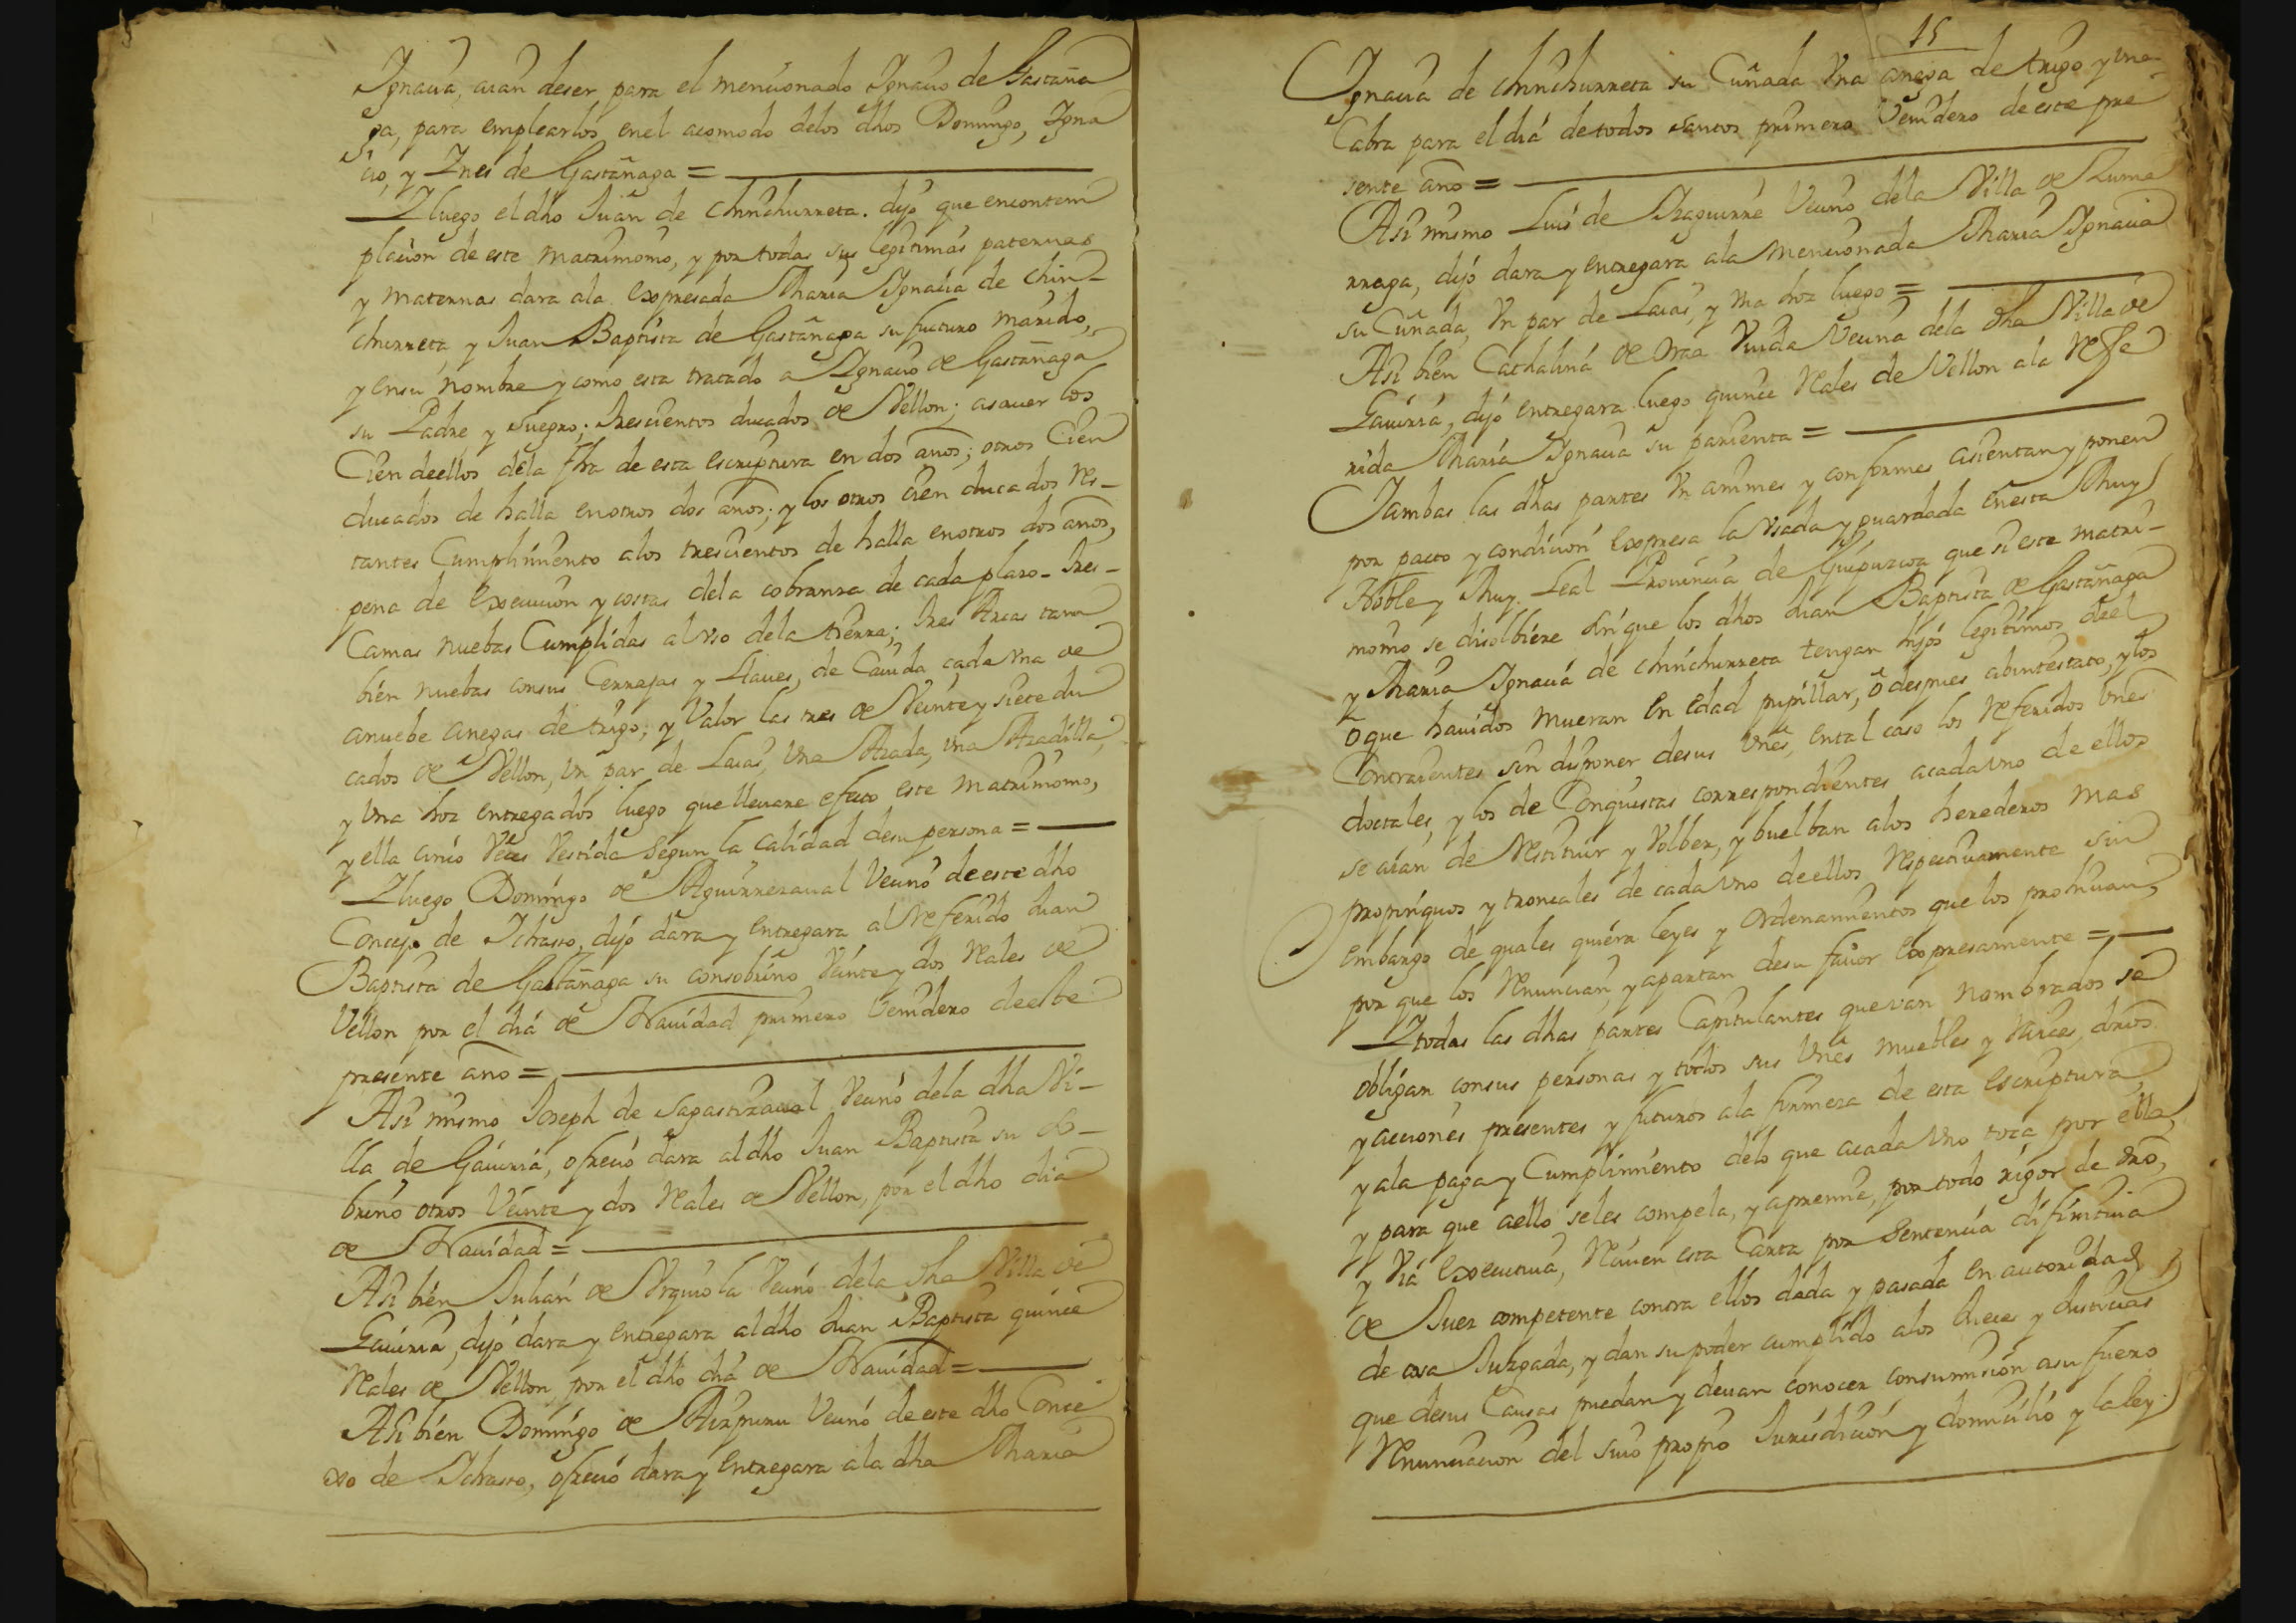 Ignacia, aian deser para el mencionado Ignacio de Gastaña
ga, para emplearlos enel acomodo delos dhos Domingo, Igna
cio, y Ines de Gastañaga =
Y luego el dho Juan de Chinchurreta. dijo que encontem
placion de este matrimonio, y por todas sus legitimas paternas
y maternas dara ala expresada Maria Ignacia de Chin-
churreta, y Juan Baptista de Gastañaga su futuro marido,
y ensu nombre y como esta tratado a Ignacio de Gastañaga
su Padre y suegro; trescientos ducados de Vellon; asauer los
Cien deellos dela fha de esta escriptura en dos años; otros Cien
ducados de halla enotros dos años; y los otros cien ducados res-
tantes Cumplimiento alos trescientos de halla enotros dos años,
pena de execucion y costas dela cobranza de cada plazo- tres-
Camas nuebas Cumplidas al vso dela tierra; tres Arcas tam
bien nuebas consus Cerrajas y Llaues, de Cauida cada vna de
anuebe anegas de trigo; y Valor las tres de Veinte y siete du
cados de Vellon, vn par de Laias, vna Azada, vna Azadilla,
y vna hoz entregados luego que lleuare efecto este matrimonio,
y ella cinco Veces Vestida segun la calidad desu persona =
Y luego Domingo de Aguirrezaual Vecino de este dho
Concejo de Ichasso, dijo dara y entregara al referido Juan
Baptista de Gastañaga su consobrino Veinte y dos reales de
Vellon por el dia de Nauidad primero Venidero de este
presente año =
Asi mismo Joseph de Sagastizaual Vecino dela dha Vi-
lla de Gauiria, ofrecio dara aldho Juan Baptista su so-
brino otros Veinte y dos reales de Vellon, por el dho dia
de Nauidad =
Asi bien Julian de Vrquiola Vecino dela dha Villa de
Gauiria, dijo dara y entregara aldho Juan Baptista quince
reales de Vellon, por el dho dia de Nauidad =
Asi bien Domingo de Aizpuru Vecino de este dho Conce
xo de Ichasso, ofrecio dara y entregara ala dha Maria
15
Ignacia de Chinchurreta su Cuñada vna anega de trigo y vna
Cabra para el dia detodos santos primero Venidero de este pre
sente año =
Asi mismo Luis de Yzaguirre Vecino dela Villa de Zuma
rraga, dijo dara y entregara ala mencionada Maria Ignacia
su Cuñada, vn par de Laias, y vna hoz luego =
Asi bien Cathalina de Oraa Viuda Vecina dela dha Villa de
Gauiria, dijo entregara luego quince reales de Vellon ala refe
rida Maria Ignacia su parienta =
Y ambas las dhas partes vn animes y conformes asientan y ponen
por pacto y condicion expresa la vsada y guardada en esta Muy
Noble y Muy Leal Prouincia de Guipuzcoa que si este matri-
monio se disolbiere sin que los dhos Juan Baptista de Gastañaga
y Maria Ignacia de Chinchurreta tengan hijos legitimos deel
o que hauidos mueran en edad pupillar, o despues abintestato, y los
Contraientes sin disponer desus vnes, ental caso los referidos vnes
doctales, y los de Conquistas correspondientes acada vno de ellos
se aian de restituir y Volber, y buelban alos herederos mas
propinquos y troncales de cada vno deellos respectiuamente sin
embargo de quales quiera leyes y ordenamientos que los prohiuan,
por que los renuncian, y apartan desu fauor expresamente =
Y todas las dhas partes Capitulantes que van nombrados se
obligan consus personas y todos sus vnes muebles y raices, drios
y acciones presentes y futuros ala firmeza de esta escriptura
y ala paga y Cumplimiento delo que acada vno toca por ella,
y para que aello seles compela, y apremie, por todo rigor de dro,
y via executiua, reciuen esta Carta por sentencia difinitiua
de Juez competente contra ellos dada y pasada en autoridad
de cosa Juzgada, y dan su poder cumplido alos Jueces y Justicias
que desus Causas puedan y deuan conocer consumision asu fuero
renunciacion del suio propio Jurisdicion y domicilio y la ley